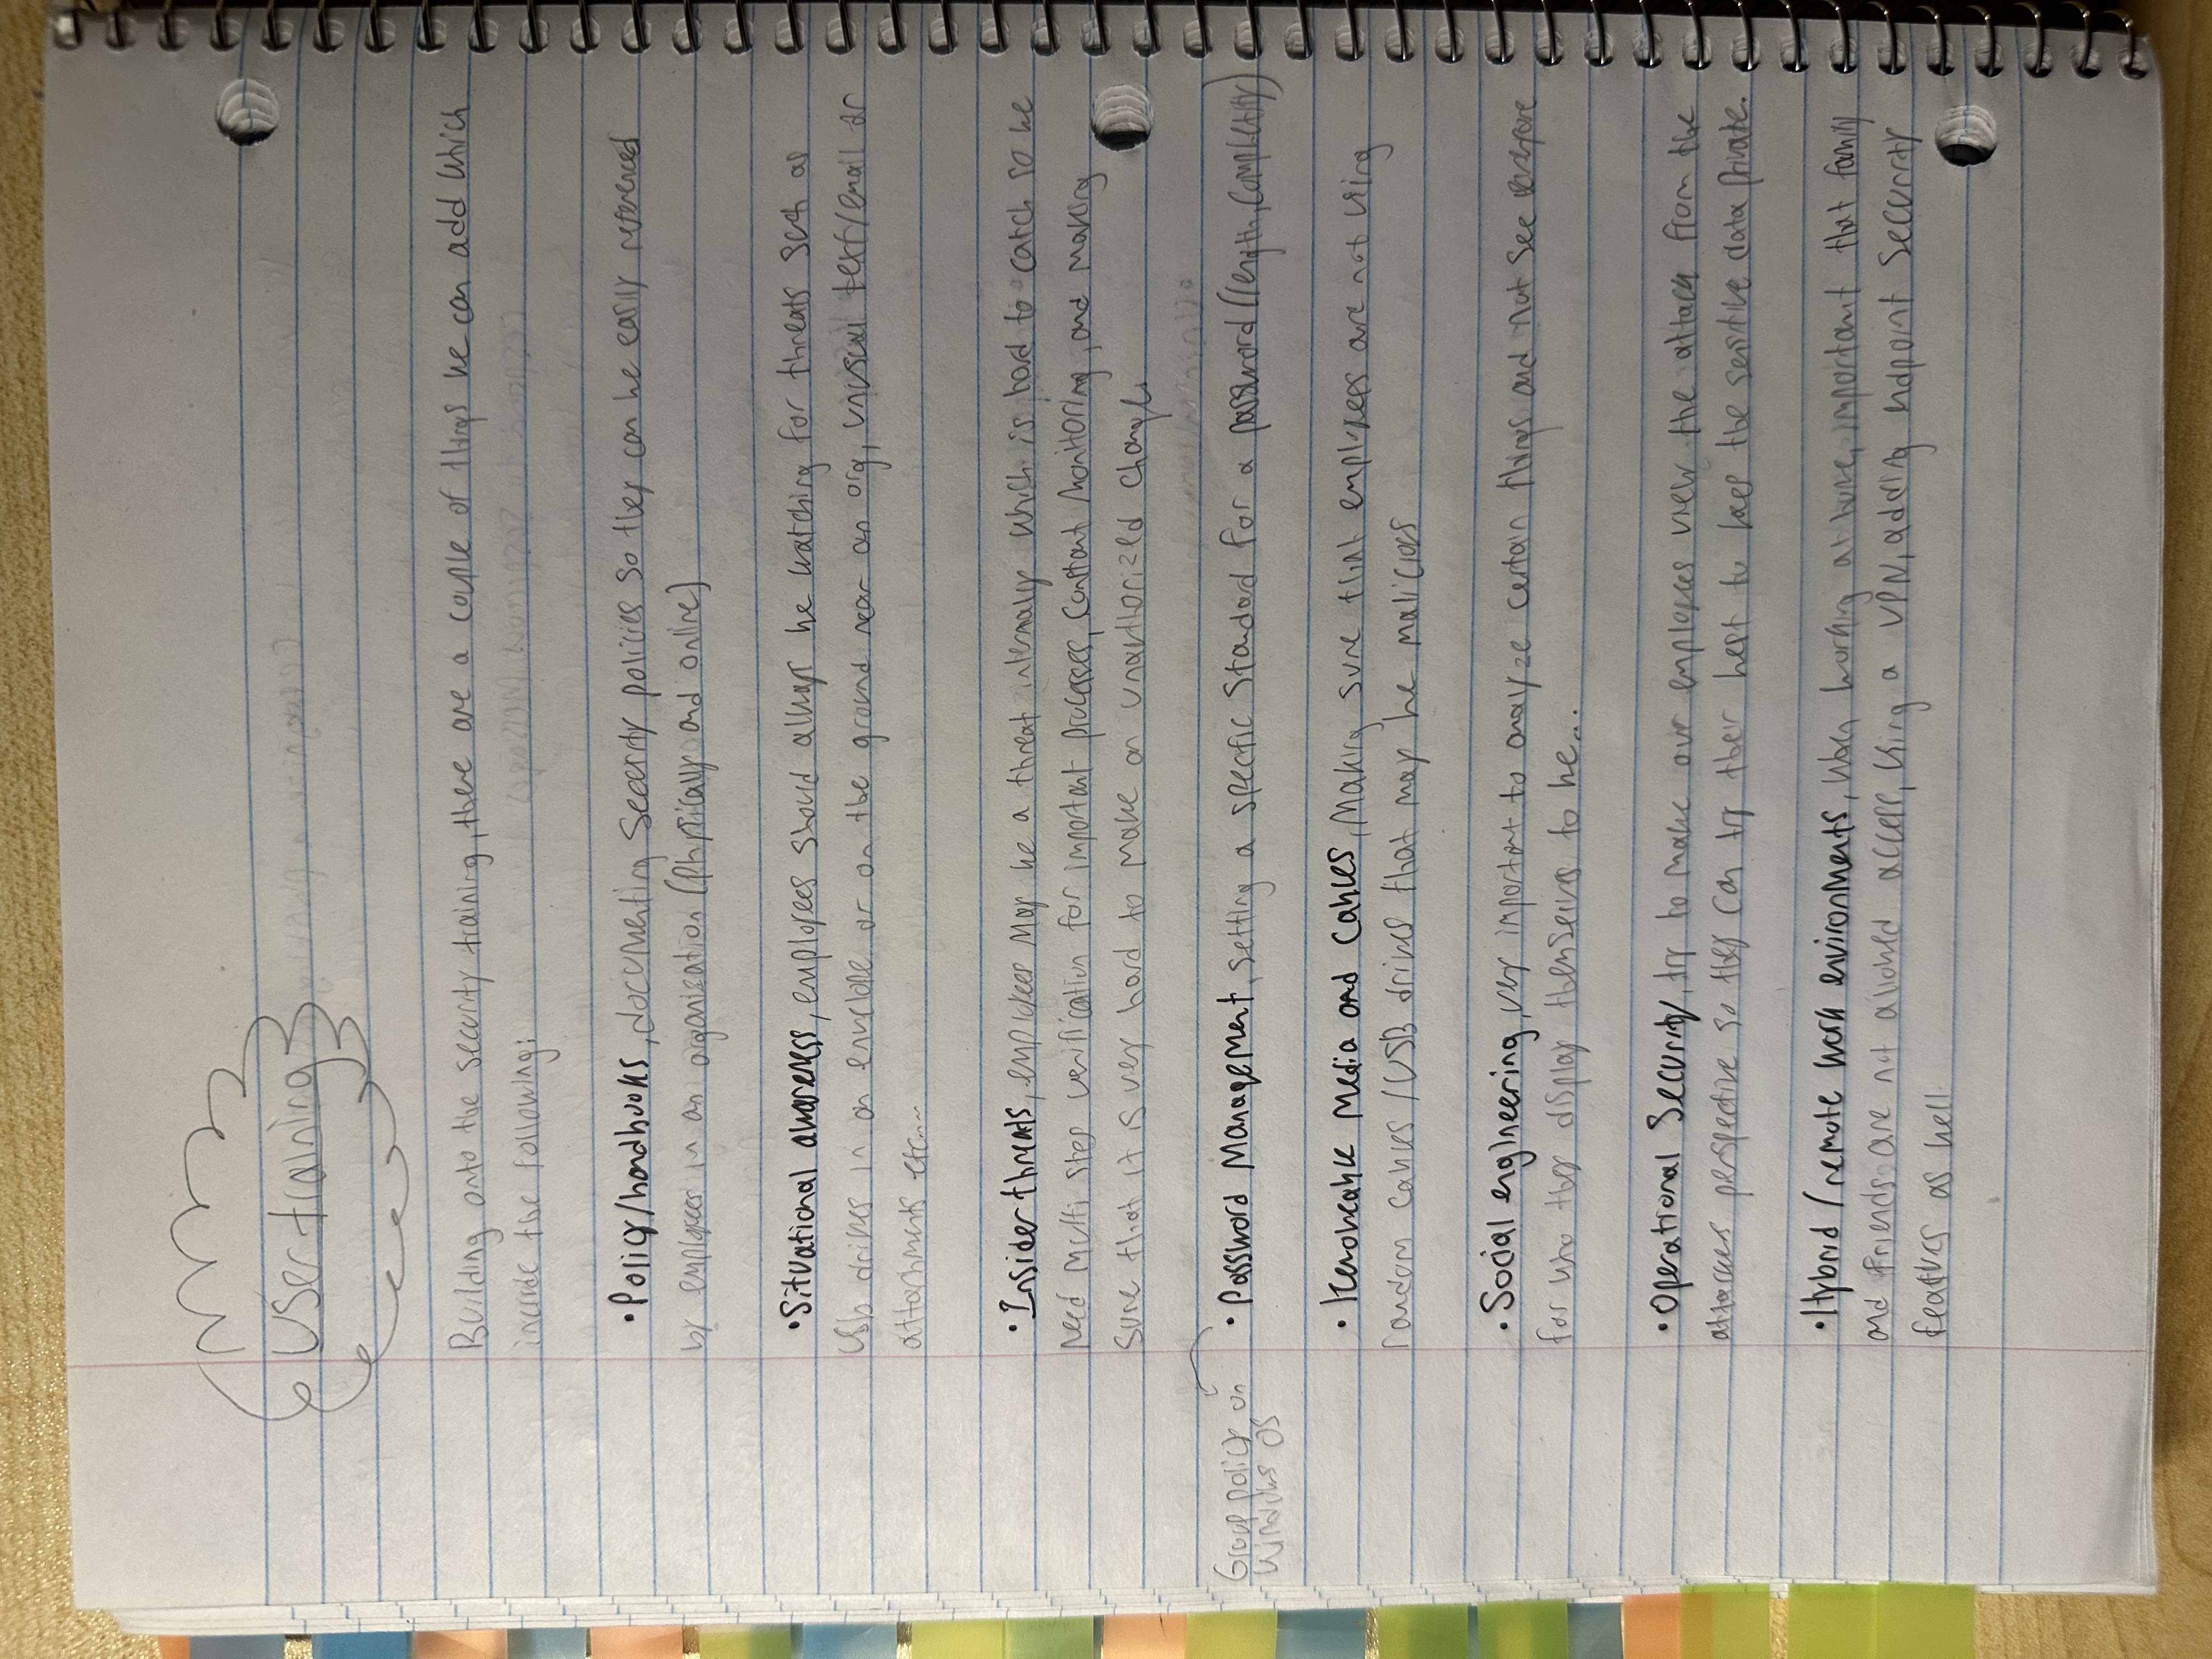 User training
Building onto the security training, there are a couple of things we can add which
include the following:
• Policy/handbooks, documenting security policies so they can be easily referenced
by employees in an organization (physically and online)
• Situational awareness, employees should always be watching for threats such as
USb drives in an envelope or on the ground near an org, unusual text/email or
attachments etc...
• Insider threats, employees may be a threat internally which is hard to catch so we
need multi step verification for important processes, constant monitoring, and making
sure that it is very hard to make an unauthorized change.
Group policy on
Windows OS
• Password Management, setting a specific standard for a password (length, complexity)
• Removeable Media and Cables, Making sure that employees are not using
random cables/USB drives that may be malicious
• Social engineering, very important to analyze certain things and not see everyone
for who they display themselves to be...
• Operational Security, try to make our employees view the attack from the
attackers perspective so they can try their best to keep the sensitive data private.
• Hybrid/remote work environments, when working at home, important that family
and friends are not allowed access, using a VPN, adding endpoint security
features as well.